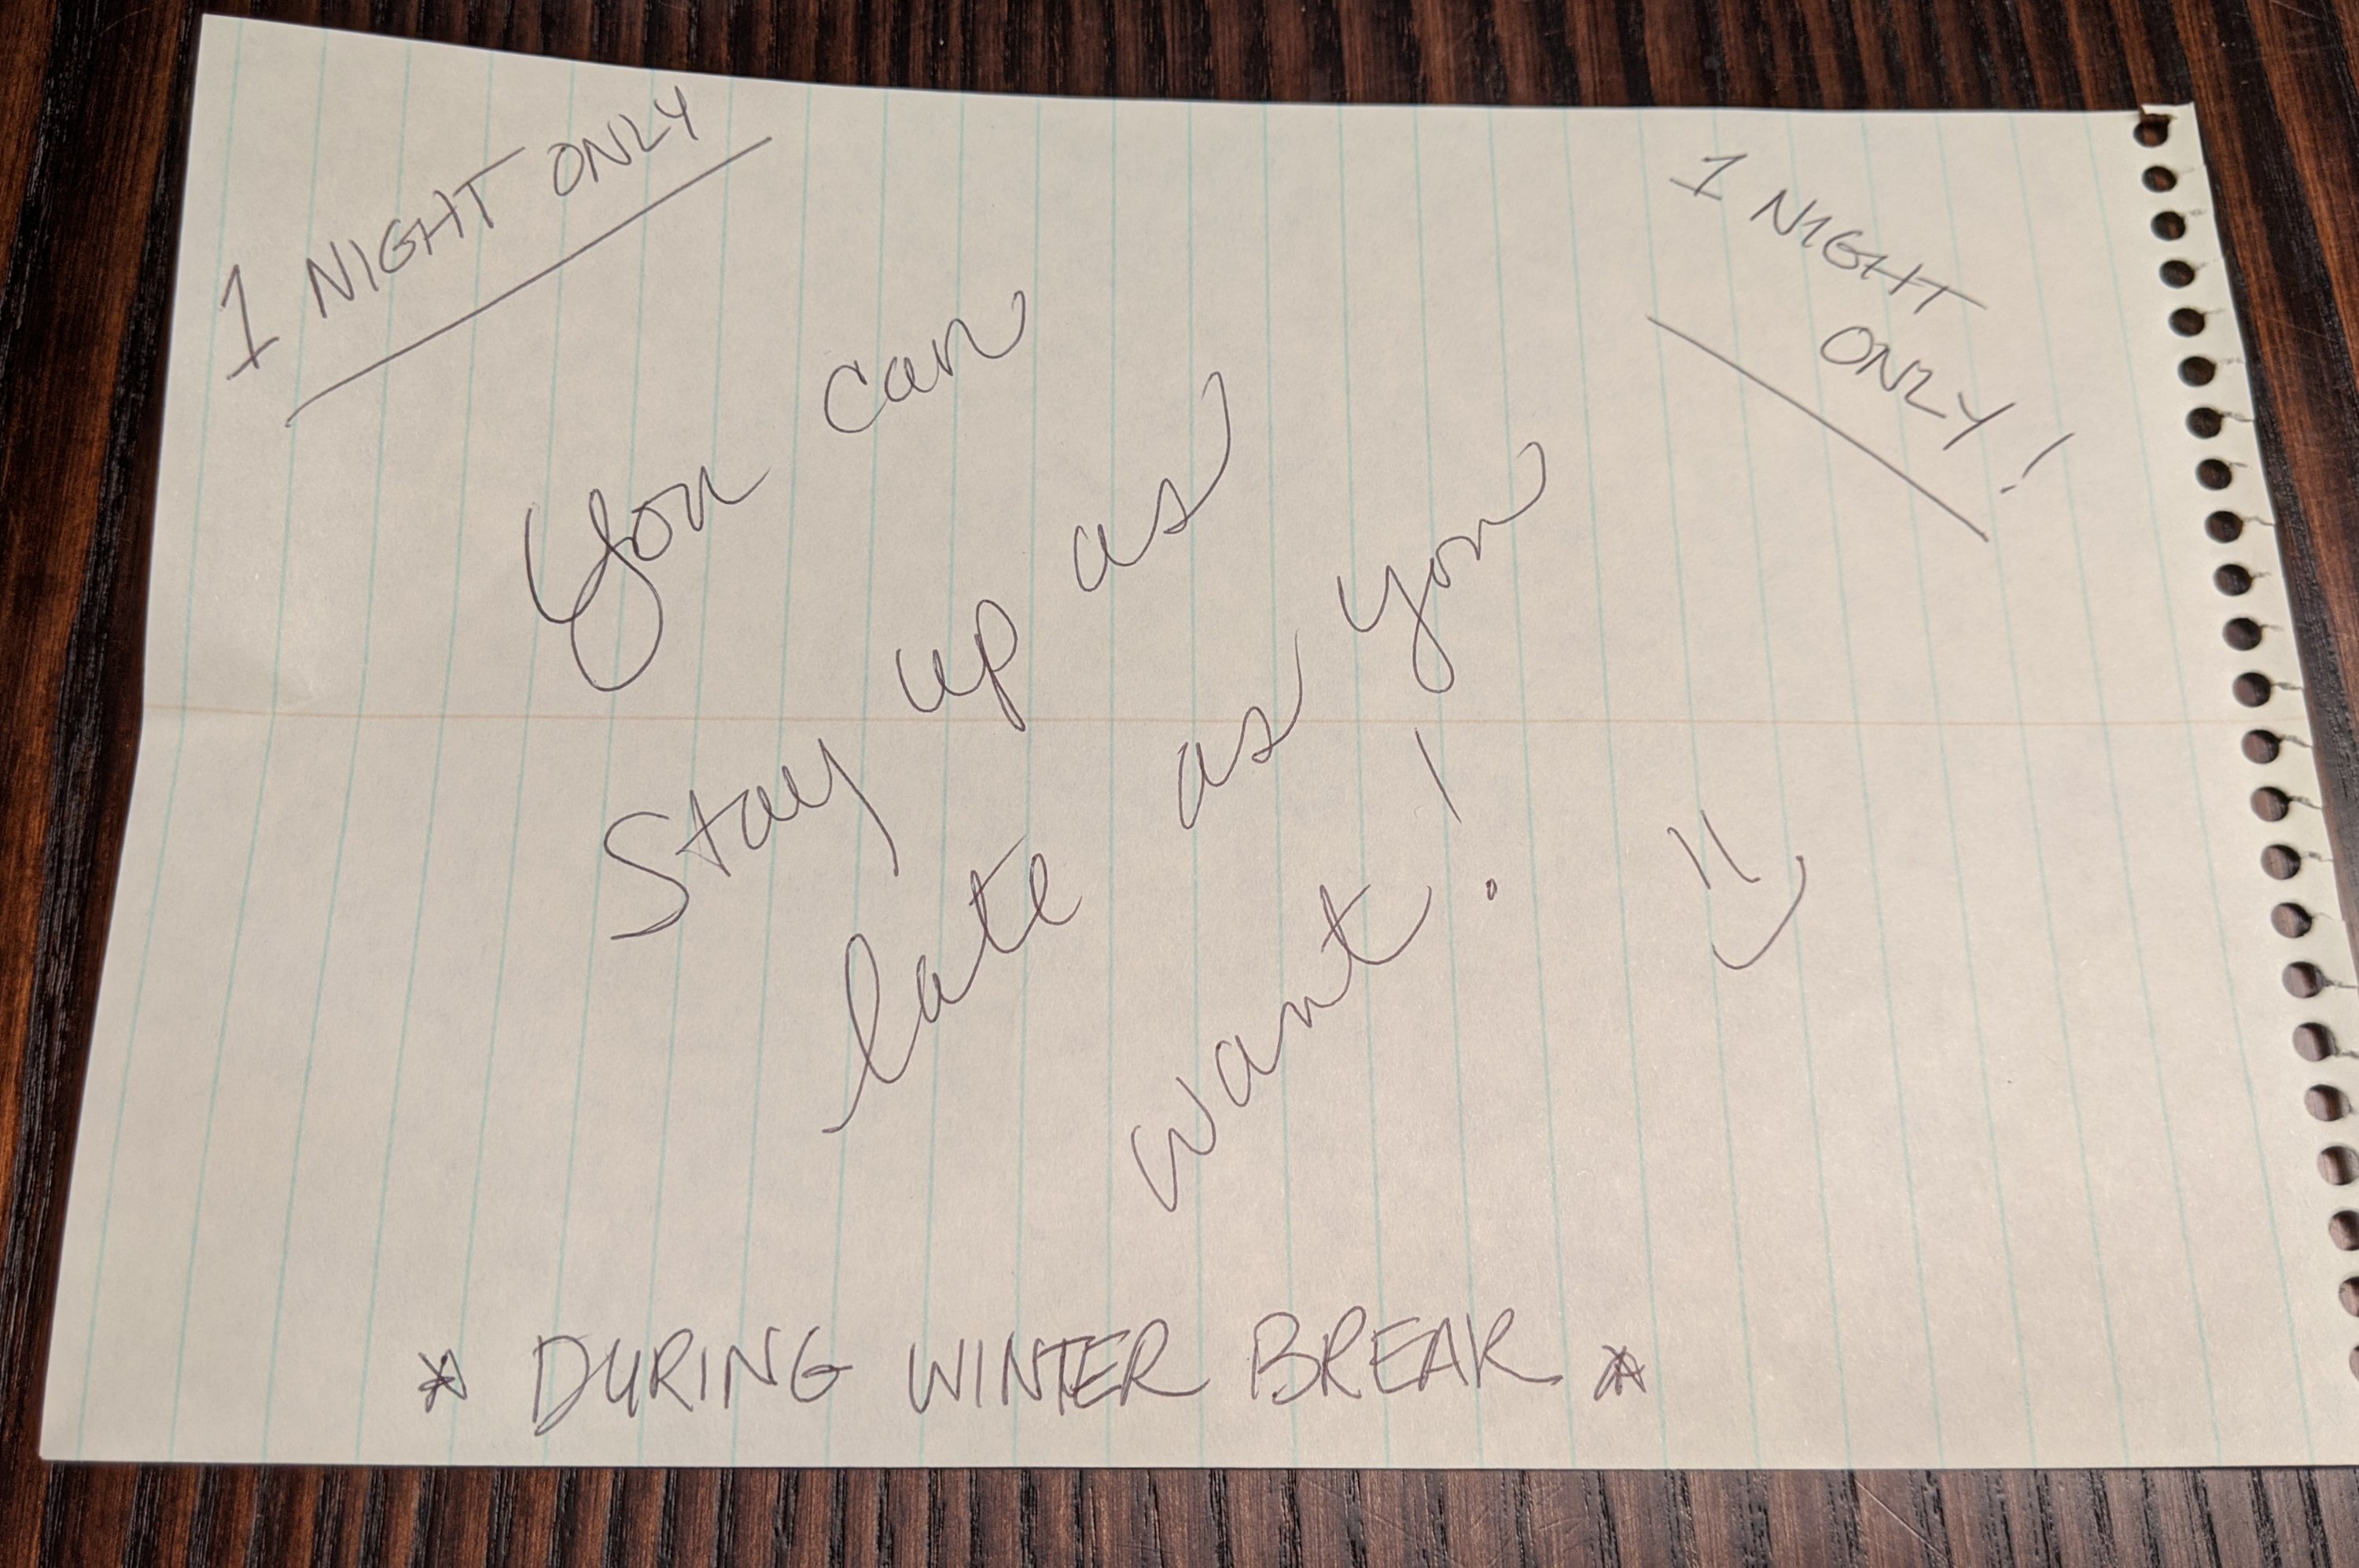 1 NIGHT ONLY
1 NIGHT
ONLY!
You can
stay up as
late as you
want!
* DURING WINTER BREAK *